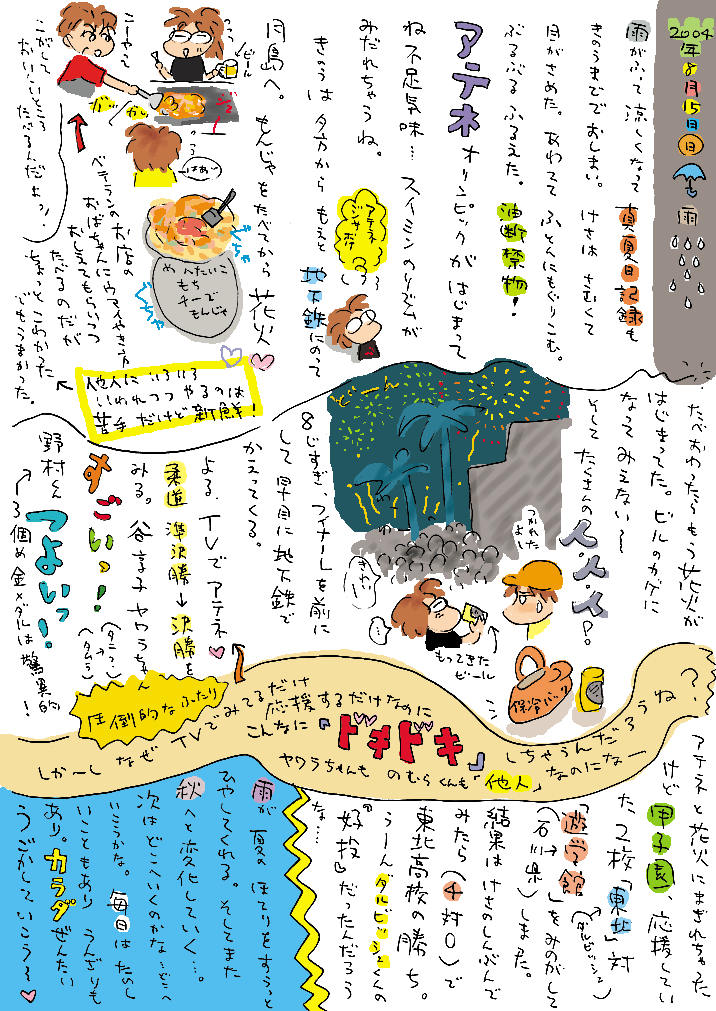 2004年8月15日(日) 雨
雨がふって涼しくなって
真夏日記録も
きのうまででおしまい。
けさはさむくて
目がさめた。あわてて ふとんにもぐりこむ。
ぶるぶるふるえた。
油断禁物!
アテネ オリンピックがはじまって
ね不足気味… スイミンのリズムが
みだれちゃうね。
アテネ
きのうは 夕方から もえと
地下鉄にのって
月島へ。もんじゃをたべてから 花火
ビール
こーやって
ジュー
はぁい
こがして
おいしいところ
たべるんだよっ
めんたいこ
もち
チーで
もんじゃ
ベテランのお店の
おばちゃんにウマイやき方
おしえてもらいつつ
たべるのだが
ちょっとこわかった
でもうまかった。
他人にいろいろ
いわれつつやるのは
苦手だけど新鮮!
たべおわったらもう花火が
はじまってた。ビルのカゲに
なってみえない〜
そして たくさんの
人、人、人?
8じすぎ、フィナーレを前に
して早目に地下鉄で
かえってくる。
きれい
…
つかれた
よし
もってきた
ビール
保冷バッグ
よる、TVでアテネ
柔道 準決勝→決勝を
みる。谷亮子 ヤワラちゃん
すごいっ!
野村くん
つよいっ!
3個め金メダルは驚異的!
圧倒的なふたり
しか〜し なぜ TVでみてるだけ
応援するだけなのに
こんなに『ドキドキ』
しちゃうんだろうね?
ヤワラちゃんも のむらくんも「他人」なのにな―
アテネと花火にまぎれちゃった
けど 甲子園、応援してい
た2校「東北」対
(ダルビッシュ)
「遊学館
(石川県)」をみのがして
しました。
結果はけさのしんぶんで
みたら(4対0)で
東北高校の勝ち。
うーん ダルビッシュくんの
『好投』だったんだろう
な…
雨が 夏の ほてりをすうっと
ひやしてくれる。そしてまた
秋へと変化していく…。
次はどこへいくのかな…どこへ
いこうかな。毎日はたのし
いこともあり うんざりも
あり。カラダ ぜんたい
うごかしていこう〜